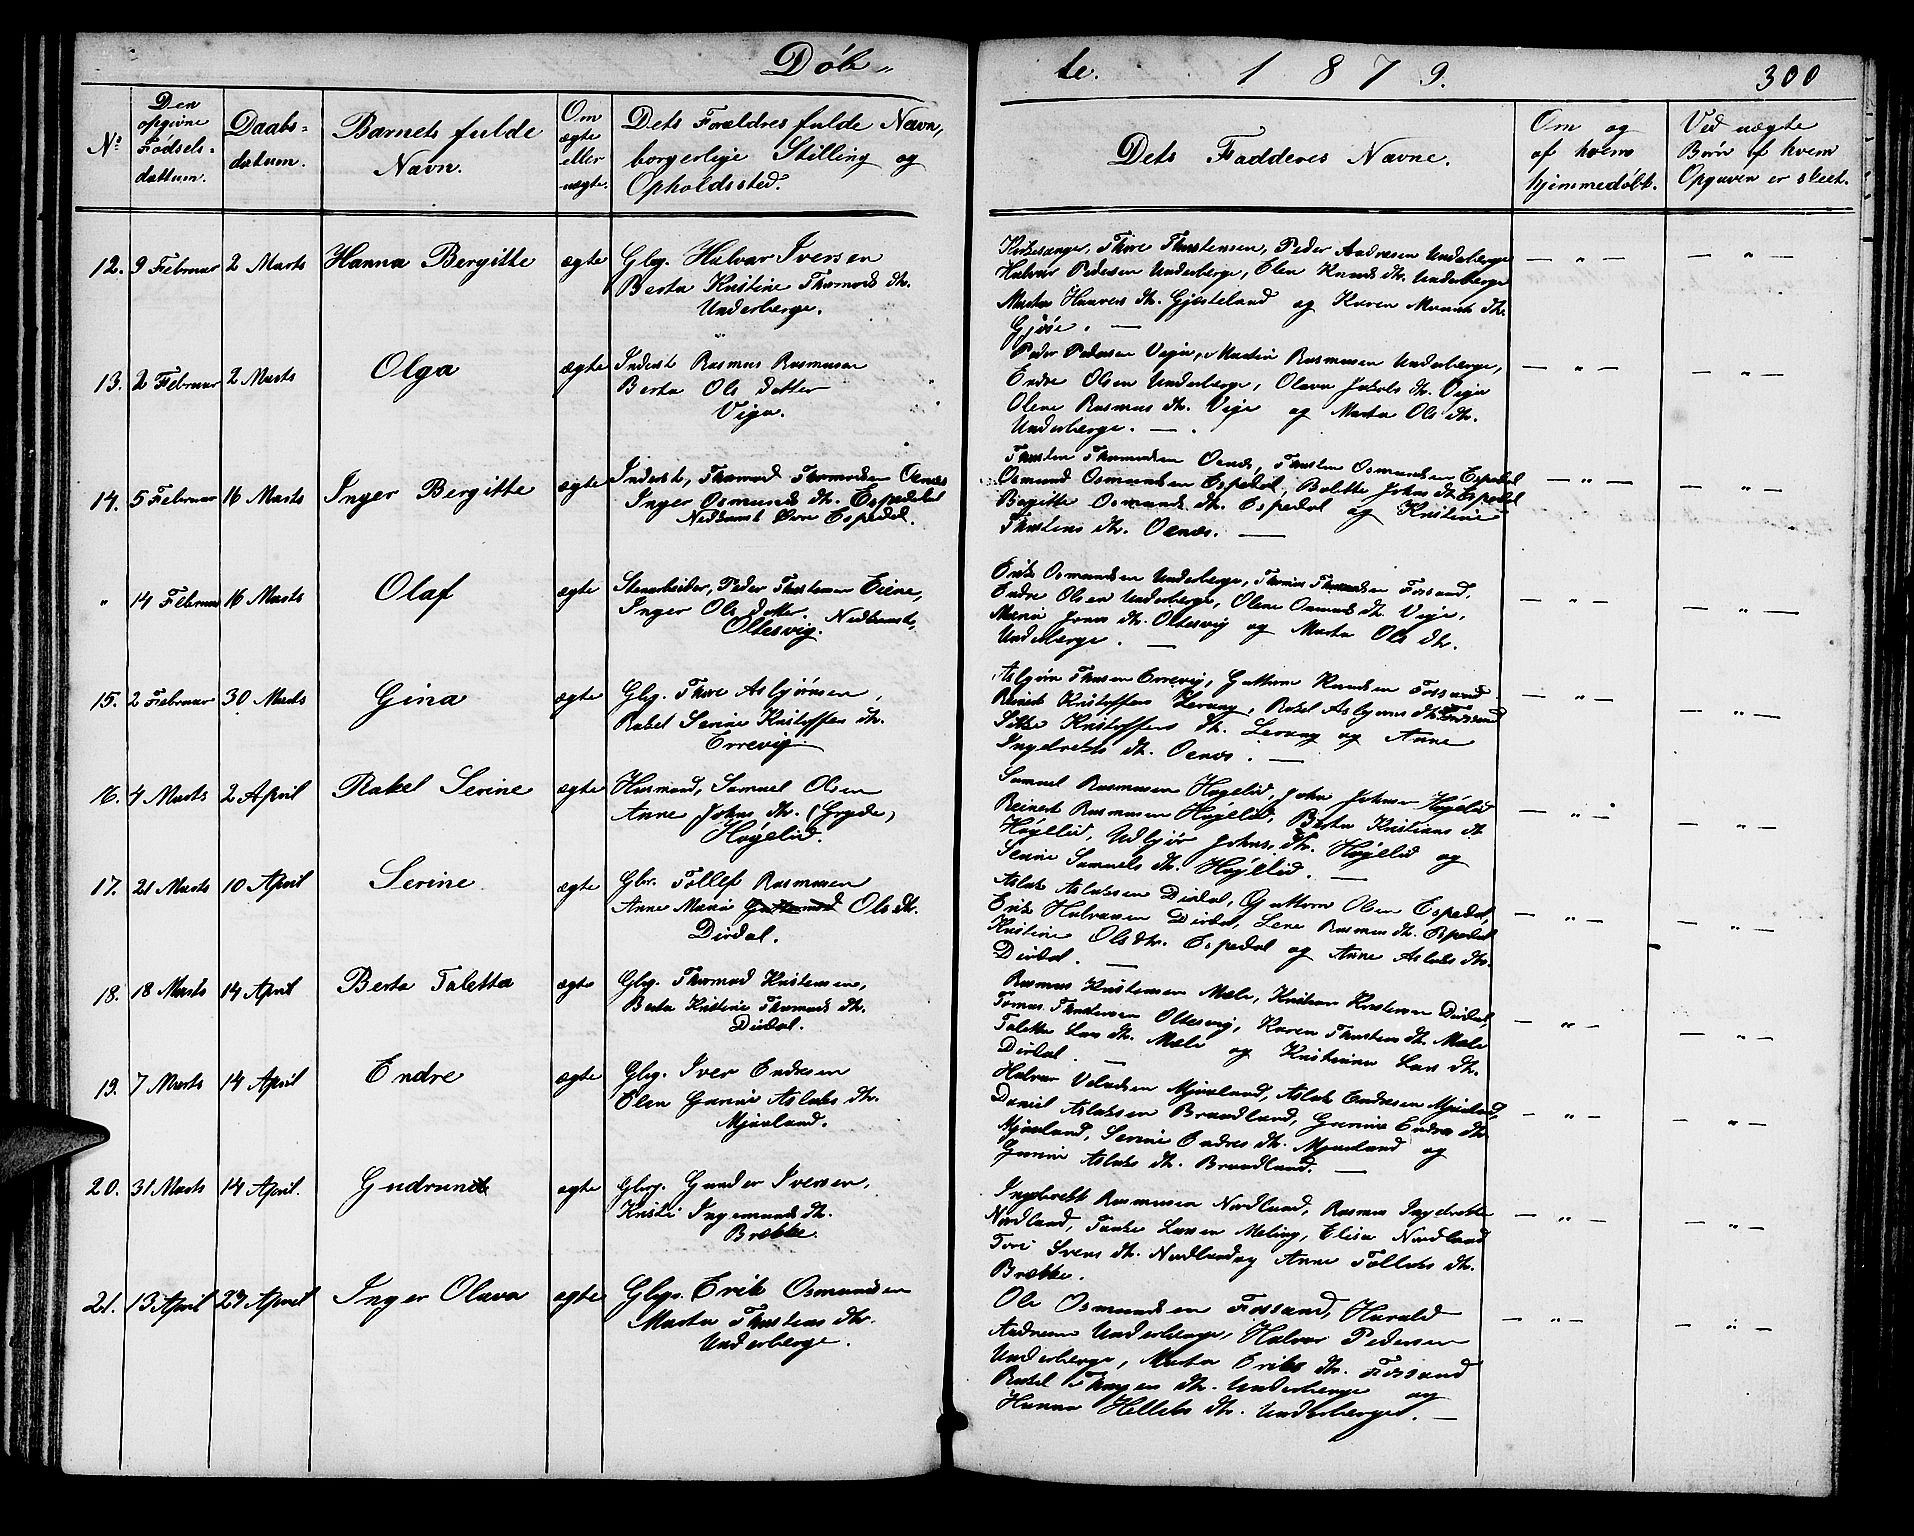 Døb-
te. 1879. 300
No.
Den opgivne Fødsels-dattum.
Daabs-datum.
Barnets fulde Navn.
Om ægte eller uægte.
Dets Forældres fulde Navn, borgerlige Stilling og Opholdssted.
Dets Fadderes Navne.
Om og af hvem hjemmedøbt.
Ved uægte Børn af hvem Opgaven er skeet.
12. 9 Februar 2 Marts Hanna Bergitte ægte Gbg. Halvar Iversen
Berta Kristine Thormods dtr.
Underberge.
Kirkesanger, Thore Thorstensen, Peder Andresen Underberge
Halvar Pedersen Underberge, Elen Knuds dtr. Underberge
Marta Haavers dtr. Gjesteland og Karen dtr.
Gjøse. —
— " — — " —
13. 2 Februar 2 Marts Olga ægte Inderst Rasmus Rasmussen
Berta Ols datter
Viga.
Peder Pedersen Veja, Martin Rasmussen Underberge,
Endre Olsen Underberge, Olava Jakobs dtr. Veja
Olene Rasmus dtr. Veje og Marta Ols dtr.
Underberge. —
— " — — " —
14. 5 Februar 16 Marts Inger Bergitte ægte Inderst, Thormod Thormodsen Oenæs
Inger Osmunds dtr. Espedal
Nedkomst Øvre Espedal.
Thorsten Thormodsen Oenæs, Thorsten Osmundsen Espedal
Osmund Osmundsen Espedal, Bolette Johns dtr. Espedal
Bergitte Osmunds dtr. Espedal og Kristine
Thorstens dtr. Oenæs. —
— " — — " —
" 14 Februar 16 Marts Olaf ægte Stenarbeider, Peder Thorstensen Eiene,
Inger Ols datter. Nedkomst-
Oltesvig.
Erik Osmundsen Underberge, Thomas Fossand,
Endre Olsen Underberge, Olene Osmunds dtr. Veje,
Maria Jonas dtr. Oltesvig og Marta Ols dtr.
Underberge —
— " — — " —
15. 2 Februar 30 Marts Gina ægte Gbg. Thore Asbjørnsen,
Rakel Serine Kristoffers dtr.
Errevig.
Asbjørn Thorsen Errevig, Guttorm Knudsen Fossand
Reinert Kristoffers Lerang, Rakel Asbjørns dtr. Fossand
Kristoffers dtr. Lerang og Anne
Ingebrets dtr. Oenæs. —
— " — — " —
16. 4 Marts 2 April Rakel Serine ægte Husmand, Samuel Olsen
Anne Johns dtr. (Gryde)
Høgelid.
Samuel Rasmussen Høgelid, John Johnsen Høgelid
Reinert Rasmussen Høgelid, Berta Kristians dtr
Høgelid, Udbjør Johns. dtr. Høgelid og
Serine Samuels dtr. Høgelid. —
— " — — " —
17. 21 Marts 10 April Serine ægte Gbr. Tollef Rasmussen
Anne Maria Ols dtr.
Dirdal.
Aslak Aslaksen Dirdal, Guttorm Olsen Espedal,
Erik Halvarsen Dirdal, Lene Rasmus dtr. Espedal
Kristine Ols dtr. Espedal og Anne Aslaks dtr.
Dirdal. —
— " — — " —
18. 18 Marts 14 April Berta Taletta ægte Gbg. Thormod Kristensen,
Berta Kristine Thormods dtr.
Dirdal.
Rasmus Kristensen Mæle, Kristian Kristensen Dirdal,
Tomas Thorstensen Oltesvig, Karen Thorstens dtr. Mæle
Taletta Lars dtr. Mæle og Kristiana Lars dtr.
Dirdal —
— " — — " —
19. 7 Marts 14 April Endre ægte Gbg. Iver Endresen
Elen Gurine Aslaks dtr.
Mjaaland.
Halvar Mjaaland, Aslak Endresen Mjaaland,
Daniel Aslaksen Braadland, Gurine Endres dtr
Mjaaland, Serine Endres dtr. Mjaaland og
Gurine Aslaks dtr. Braadland. —
— " — — " —
20. 31 Marts 14 April. Gudrund ægte Gbrg. Gunder Iversen,
Kristi Ingemunds dtr.
Brække.
Ingebrekt Rasmussen Nordland, Rasmus Ingebrekts
Nordland, Larsen Meling, Elisa Nordland
Tori Svens dtr. Nordland og Anne Tollaks dtr.
Brække.
— " — — " —
21. 13 April 27 April Inger Olava ægte Gbgr. Erik Osmundsen
Marta Thorstens dtr.
Underberge.
Ole Osmundsen Fossand, Harald
Andresen Underberge, Halvar Pedersen
Underberge, Marta Eriks dtr. Fossand
Rakel Thores dtr. Underberge og
Hanna Helleks dtr. Underberge. —
— " — — " —